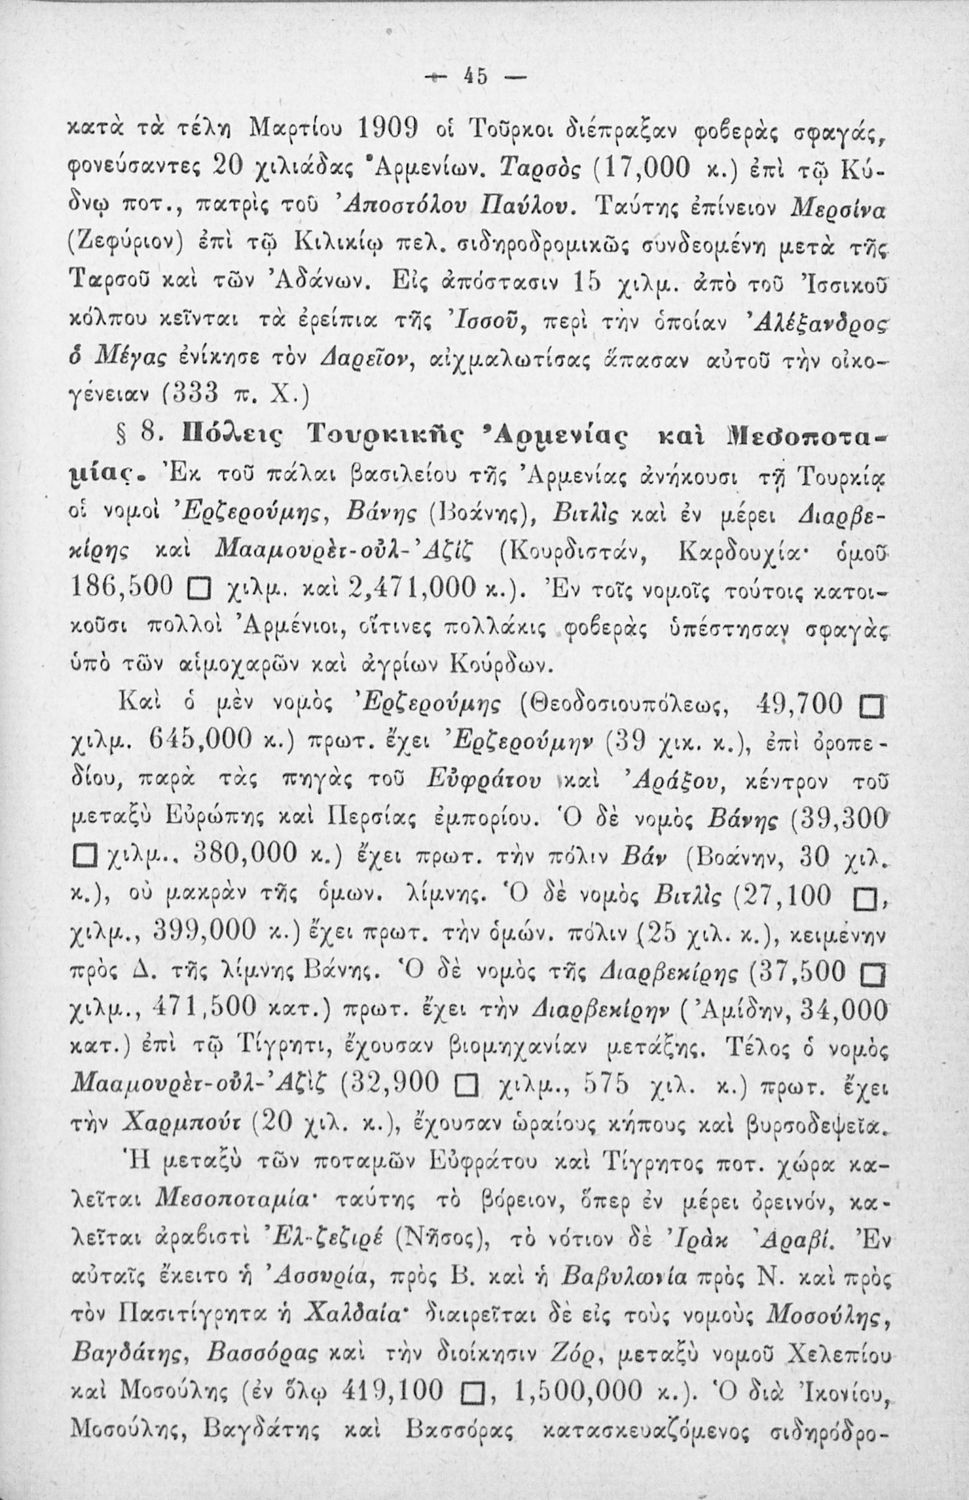 — 45 —
κατὰ τὰ τέλη Μαρτίου 1909 οἱ Τοῦρκοι διέπραξαν φοβερὰς σφαγάς,
φονεύσαντες 20 χιλιάδας Ἀρμενίων. Ταρσὸς (17,000 κ.) ἐπὶ τῷ Κύ-
δνῳ ποτ., πατρὶς τοῦ Ἀποστόλου Παύλου. Ταύτης ἐπίνειον Μερσίνα
(Ζεφύριον) ἐπὶ τῷ Κιλικίῳ πελ. σιδηροδρομικῶς συνδεομένη μετὰ τῆς
Ταρσοῦ καὶ τῶν Ἀδάνων. Εἰς ἀπόστασιν 15 χιλμ. ἀπὸ τοῦ Ἰσσικοῦ
κόλπου κεῖνται τὰ ἐρείπια τῆς Ἰσσοῦ, περὶ τὴν ὁποίαν Ἀλέξανδρος
ὁ Μέγας ἐνίκησε τὸν Δαρεῖον, αἰχμαλωτίσας ἅπασαν αὐτοῦ τὴν οἰκο-
γένειαν (333 π. Χ.)
§ 8. Πόλεις Τουρκικῆς Ἀρμενίας καὶ Μεσοποτα-
μίας. Ἐκ τοῦ πάλαι βασιλείου τῆς Ἀρμενίας ἀνήκουσι τῇ Τουρκίᾳ
οἱ νομοὶ Ἐρζερούμης, Βάνης (Βοάνης), Βιτλὶς καὶ ἐν μέρει Διαρβε-
κίρης καὶ Μααμουρὲτ-οὐλ-Ἀζίζ (Κουρδιστάν, Καρδουχία· ὁμοῦ
186,500 □ χιλμ. καὶ 2,471,000 κ.). Ἐν τοῖς νομοῖς τούτοις κατοι-
κοῦσι πολλοὶ Ἀρμένιοι, οἵτινες πολλάκις φοβερὰς ὑπέστησαν σφαγὰς
ὑπὸ τῶν αἱμοχαρῶν καὶ ἀγρίων Κούρδων.
Καὶ ὁ μὲν νομὸς Ἐρζερούμης (Θεοδοσιουπόλεως, 49,700 □
χιλμ. 645,000 κ.) πρωτ. ἔχει Ἐρζερούμην (39 χικ. κ.), ἐπὶ ὀροπε-
δίου, παρὰ τὰς πηγὰς τοῦ Εὐφράτου καὶ Ἀράξου, κέντρον τοῦ
μεταξὺ Εὐρώπης καὶ Περσίας ἐμπορίου. Ὁ δὲ νομὸς Βάνης (39,300
□ χιλμ., 380,000 κ.) ἔχει πρωτ. τὴν πόλιν Βάν (Βοάνην, 30 χιλ.
κ.), οὐ μακρὰν τῆς ὁμων. λίμνης. Ὁ δὲ νομὸς Βιτλὶς (27,100 □,
χιλμ., 399,000 κ.) ἔχει πρωτ. τὴν ὁμών. πόλιν (25 χιλ. κ.), κειμένην
πρὸς Δ. τῆς λίμνης Βάνης. Ὁ δὲ νομὸς τῆς Διαρβεκίρης (37,500 □
χιλμ., 471,500 κατ.) πρωτ. ἔχει τὴν Διαρβεκίρην (Ἀμίδην, 34,000
κατ.) ἐπὶ τῷ Τίγρητι, ἔχουσαν βιομηχανίαν μετάξης. Τέλος ὁ νομὸς
Μααμουρὲτ-οὐλ-Ἀζὶζ (32,900 □ χιλμ., 575 χιλ. κ.) πρωτ. ἔχει
τὴν Χαρμπούτ (20 χιλ. κ.), ἔχουσαν ὡραίους κήπους καὶ βυρσοδεψεῖα.
Ἡ μεταξὺ τῶν ποταμῶν Εὐφράτου καὶ Τίγρητος ποτ. χώρα κα-
λεῖται Μεσοποταμία· ταύτης τὸ βόρειον, ὅπερ ἐν μέρει ὀρεινόν, κα-
λεῖται ἀραβιστὶ Ἐλ-ζεζιρέ (Νῆσος), τὸ νότιον δὲ Ἰρὰκ Ἀραβί. Ἐν
αὐταῖς ἔκειτο ἡ Ἀσσυρία, πρὸς Β. καὶ ἡ Βαβυλωνία πρὸς Ν. καὶ πρὸς
τὸν Πασιτίγρητα ἡ Χαλδαία· διαιρεῖται δὲ εἰς τοὺς νομοὺς Μοσούλης,
Βαγδάτης, Βασσόρας καὶ τὴν διοίκησιν Ζόρ, μεταξὺ νομοῦ Χελεπίου
καὶ Μοσούλης (ἐν ὅλῳ 419,100 □, 1,500,000 κ.). Ὁ διὰ Ἰκονίου,
Μοσούλης, Βαγδάτης καὶ Βασσόρας κατασκευαζόμενος σιδηρόδρο-